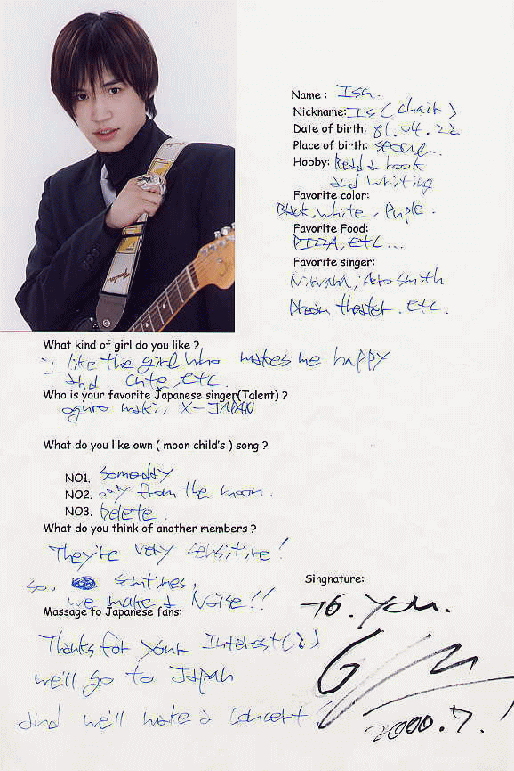 Name: Isa.
Nickname: Is (chair)
Date of birth: 81.04.22
Place of birth: Seoul...
Hobby: Read a book
and whiting
Favorite color:
Black, white, Puple.
Favorite Food:
PIZZA, ETC...
Favorite singer:
Nirvana, Aerosmith
Dream theater. ETC.
What kind of girl do you like ?
I like the girl who makes me happy
and cute, etc.
Who is your favorite Japanese singer(Talent) ?
oguro maki, X-JAPAN
What do you like own ( moon child's ) song ?
NO1. Someday
NO2. boy from the moon.
NO3. Delete.
What do you think of another members ?
They're very sensitive!
so, somtimes,
we make a Noise!!
Singnature:
To. you.
Massage to Japanese fans:
Thanks for your Interest(:)
we'll go to Japan
and we'll make a concert
2000.7.!